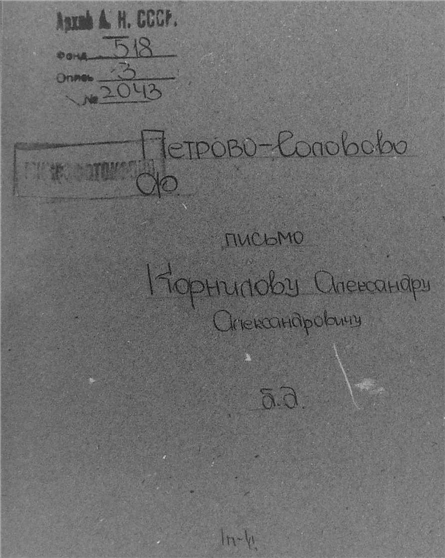 Архив А. Н. СССР.
Фонд 518
Опись 3
№ 2043
Петрово-Соловово
Ф.
письмо
Корнилову Александру
Александровичу
б.д.